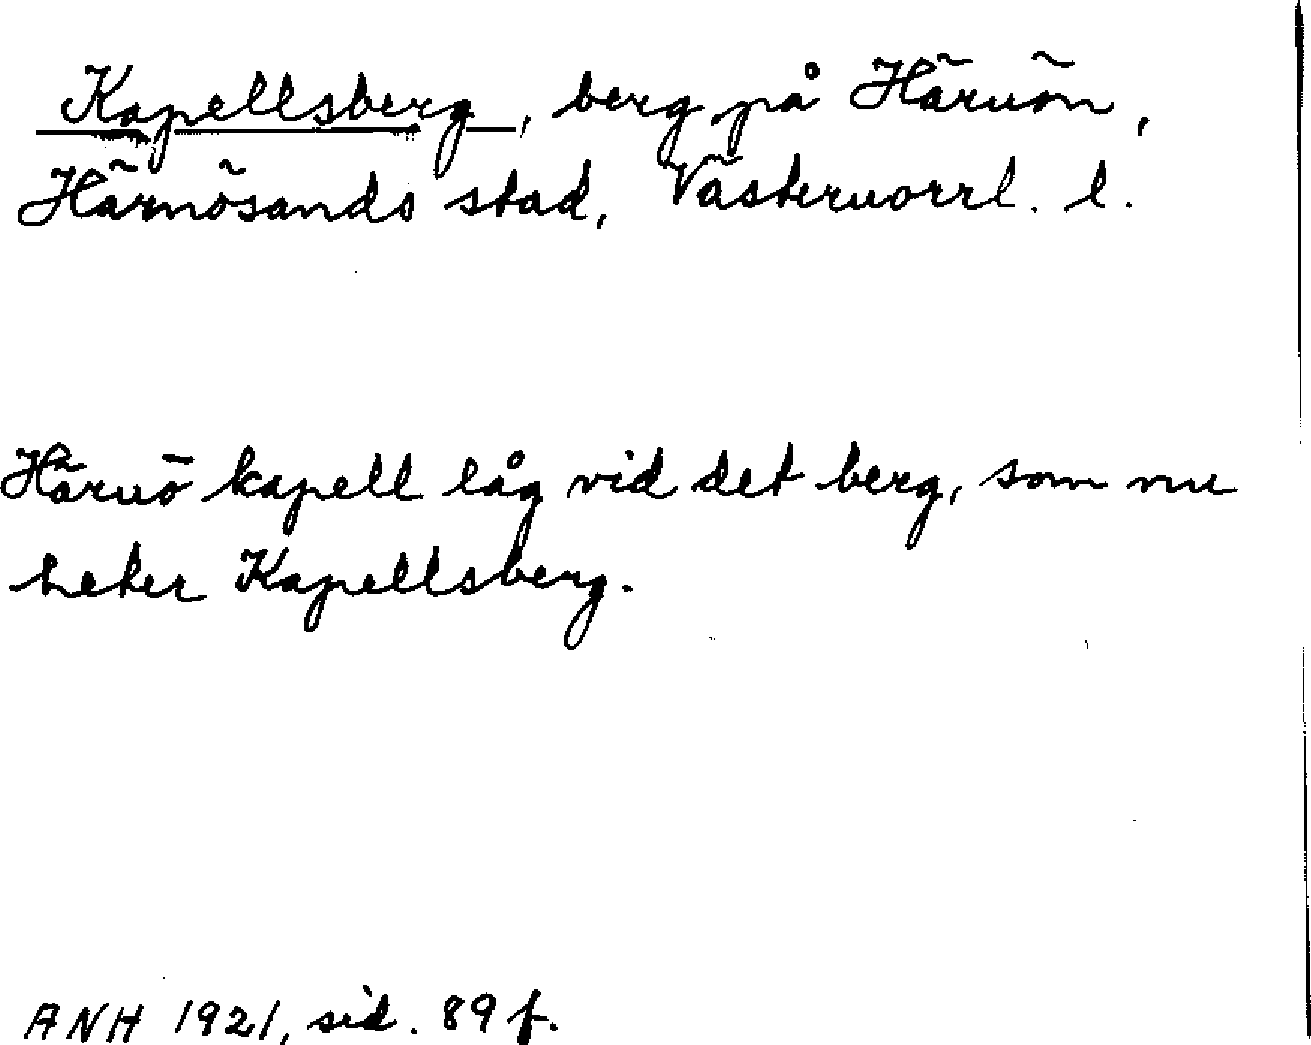 Kapellsberg, berg på Härnön,
Härnösands stad, Västernorrl. l.
Härnö kapell låg vid det berg, som nu
heter Kapellsberg.
ANH 1921, sid. 89 f.